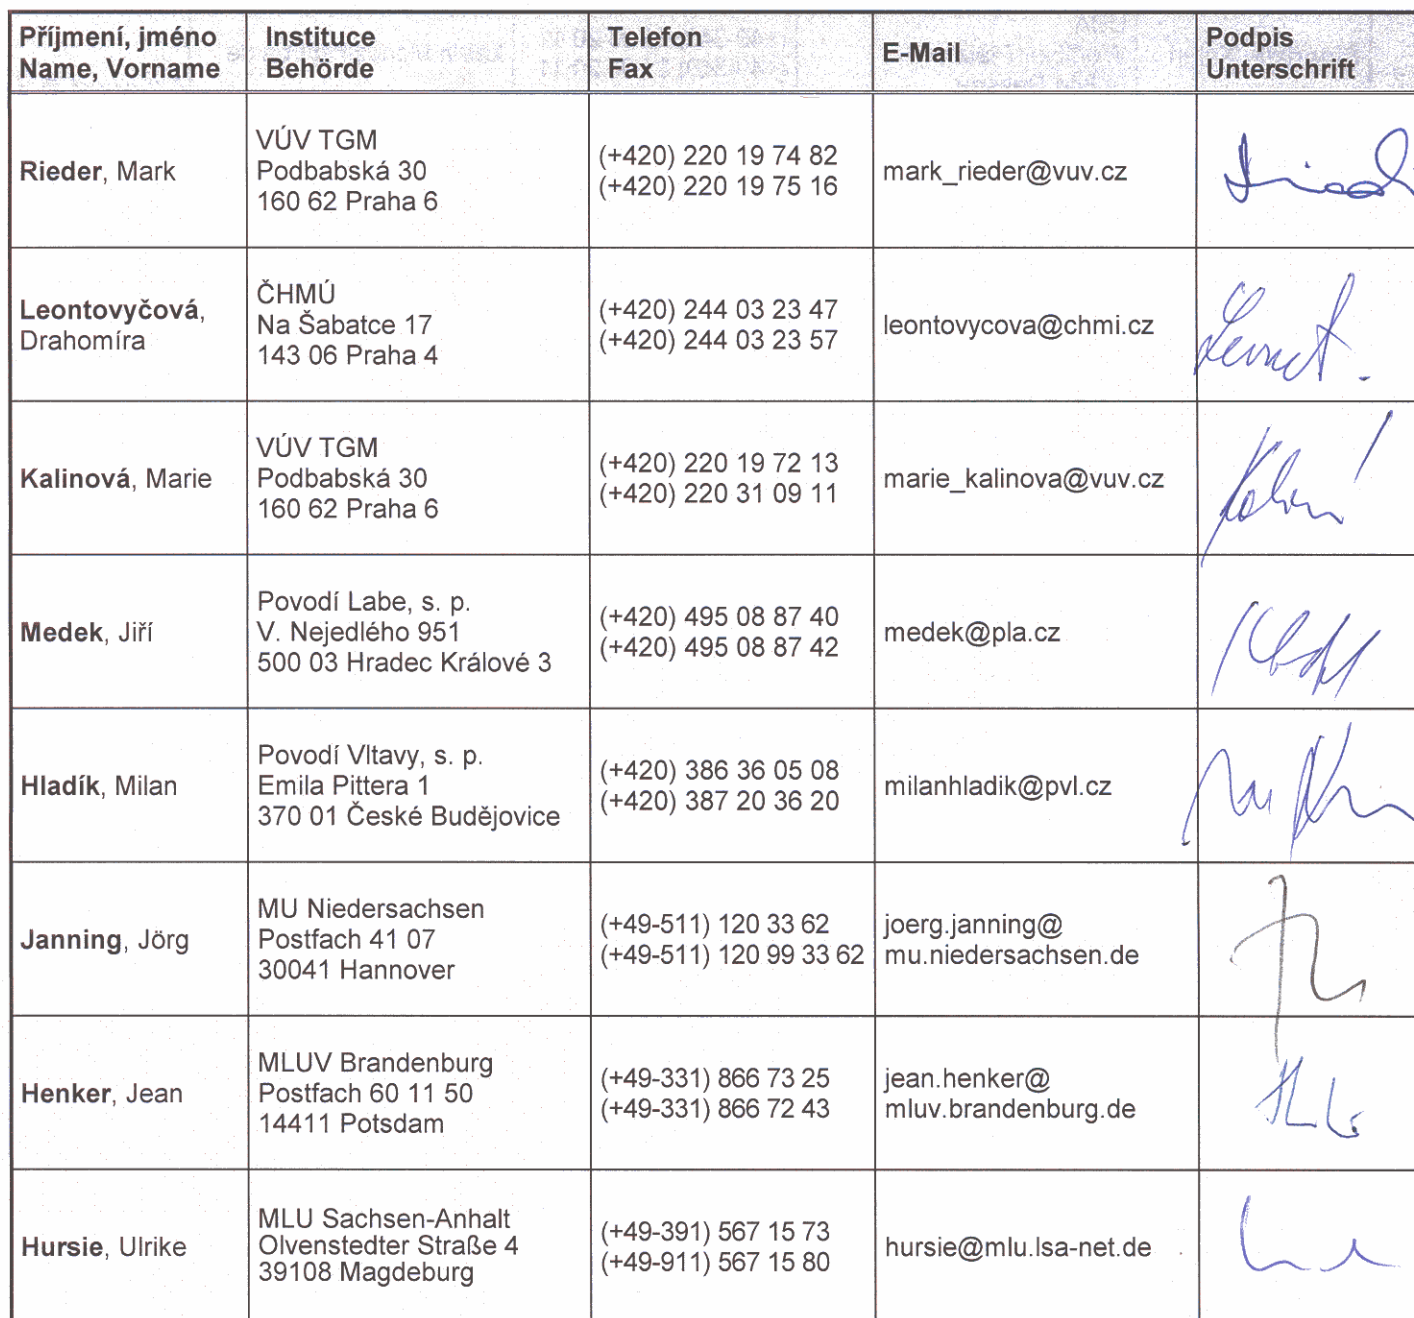 Příjmení, jméno
Name, Vorname
Instituce
Behörde
Telefon
Fax
E-Mail
Podpis
Unterschrift
Rieder, Mark
VÚV TGM
Podbabská 30
160 62 Praha 6
(+420) 220 19 74 82
(+420) 220 19 75 16
mark_rieder@vuv.cz
Leontovyčová,
Drahomíra
ČHMÚ
Na Šabatce 17
143 06 Praha 4
(+420) 244 03 23 47
(+420) 244 03 23 57
leontovycova@chmi.cz
Kalinová, Marie
VÚV TGM
Podbabská 30
160 62 Praha 6
(+420) 220 19 72 13
(+420) 220 31 09 11
marie_kalinova@vuv.cz
Medek, Jiří
Povodí Labe, s. p.
V. Nejedlého 951
500 03 Hradec Králové 3
(+420) 495 08 87 40
(+420) 495 08 87 42
medek@pla.cz
Hladík, Milan
Povodí Vltavy, s. p.
Emila Pittera 1
370 01 České Budějovice
(+420) 386 36 05 08
(+420) 387 20 36 20
milanhladik@pvl.cz
Janning, Jörg
MU Niedersachsen
Postfach 41 07
30041 Hannover
(+49-511) 120 33 62
(+49-511) 120 99 33 62
joerg.janning@
mu.niedersachsen.de
Henker, Jean
MLUV Brandenburg
Postfach 60 11 50
14411 Potsdam
(+49-331) 866 73 25
(+49-331) 866 72 43
jean.henker@
mluv.brandenburg.de
Hursie, Ulrike
MLU Sachsen-Anhalt
Olvenstedter Straße 4
39108 Magdeburg
(+49-391) 567 15 73
(+49-911) 567 15 80
hursie@mlu.lsa-net.de